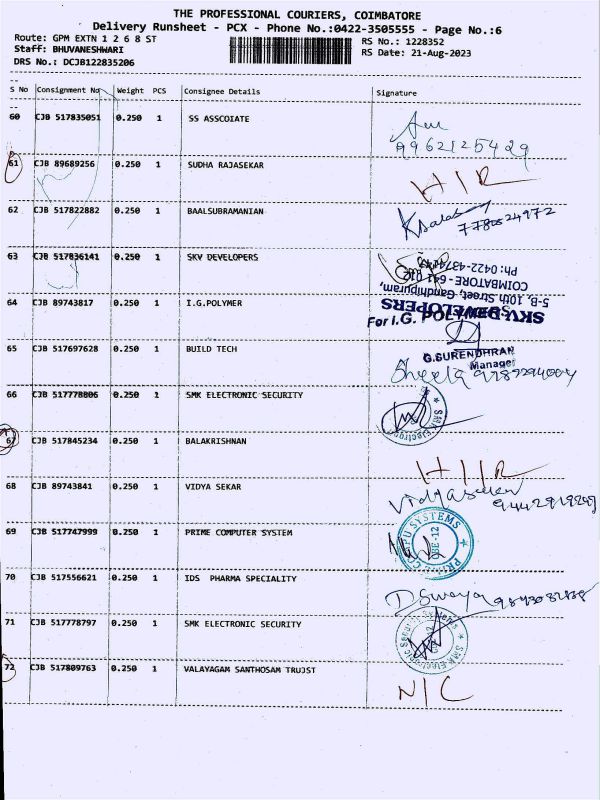 THE PROFESSIONAL COURIERS, COIMBATORE
Delivery Runsheet - PCX - Phone No.:0422-3505555 - Page No.:6
Route: GPM EXTN 1 2 6 8 ST RS No.: 1228352
Staff: BHUVANESHWARI RS Date: 21-Aug-2023
DRS No.: DCJB122835206
S No Consignment No Weight PCS Consignee Details Signature
60 CJB 517835051 0.250 1 SS ASSCOIATE
9962125429
61 CJB 89689256 0.250 1 SUDHA RAJASEKAR
62 CJB 517822882 0.250 1 BAALSUBRAMANIAN
63 CJB 517836141 0.250 1 SKV DEVELOPERS
SKV DEVELOPERS
5-B, 10th Street, Gandhipuram,
COIMBATORE - 641 012
64 CJB 89743817 0.250 1 I.G.POLYMER
For I.G. POLYMER
G.SURENDHRAN
Manager
65 CJB 517697628 0.250 1 BUILD TECH
Sheela
66 CJB 517778806 0.250 1 SMK ELECTRONIC SECURITY
67 CJB 517845234 0.250 1 BALAKRISHNAN
68 CJB 89743841 0.250 1 VIDYA SEKAR
69 CJB 517747999 0.250 1 PRIME COMPUTER SYSTEM
70 CJB 517556621 0.250 1 IDS PHARMA SPECIALITY
71 CJB 517778797 0.250 1 SMK ELECTRONIC SECURITY
72 CJB 517809763 0.250 1 VALAYAGAM SANTHOSAM TRUJST
N/C